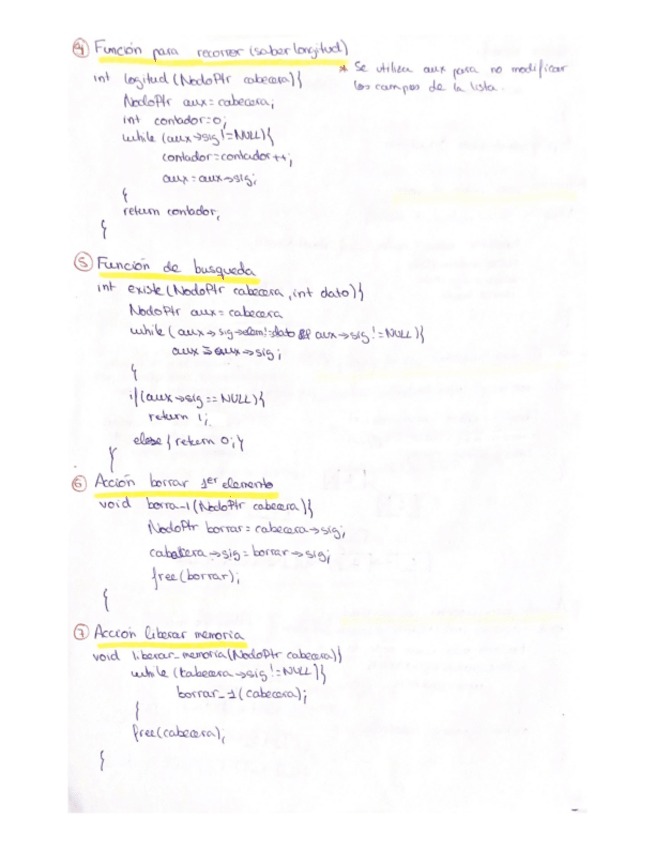 ④ Función para recorrer (saber longitud)
* Se utiliza aux para no modificar
los campos de la lista.
int logitud (NodoPtr cabecera){
NodoPtr aux=cabecera;
int contador=0;
while (aux→sig!=NULL){
contador=contador++;
aux=aux→sig;
{
return contador;
{
⑤ Función de busqueda
int existe(NodoPtr cabecera, int dato){
NodoPtr aux=cabecera
while (aux→sig→elem!=dato && aux→sig!=NULL){
aux=aux→sig;
{
if(aux→sig==NULL){
return 1;
else{return 0;}
}
⑥ Acción borrar 1er elemento
void borra-1(NodoPtr cabecera){
NodoPtr borrar=cabecera→sig;
cabecera→sig=borrar→sig;
free(borrar);
{
⑦ Acción liberar memoria
void liberar_memoria(NodoPtr cabecera){
while (cabecera→sig!=NULL){
borrar_1(cabecera);
{
free(cabecera);
{